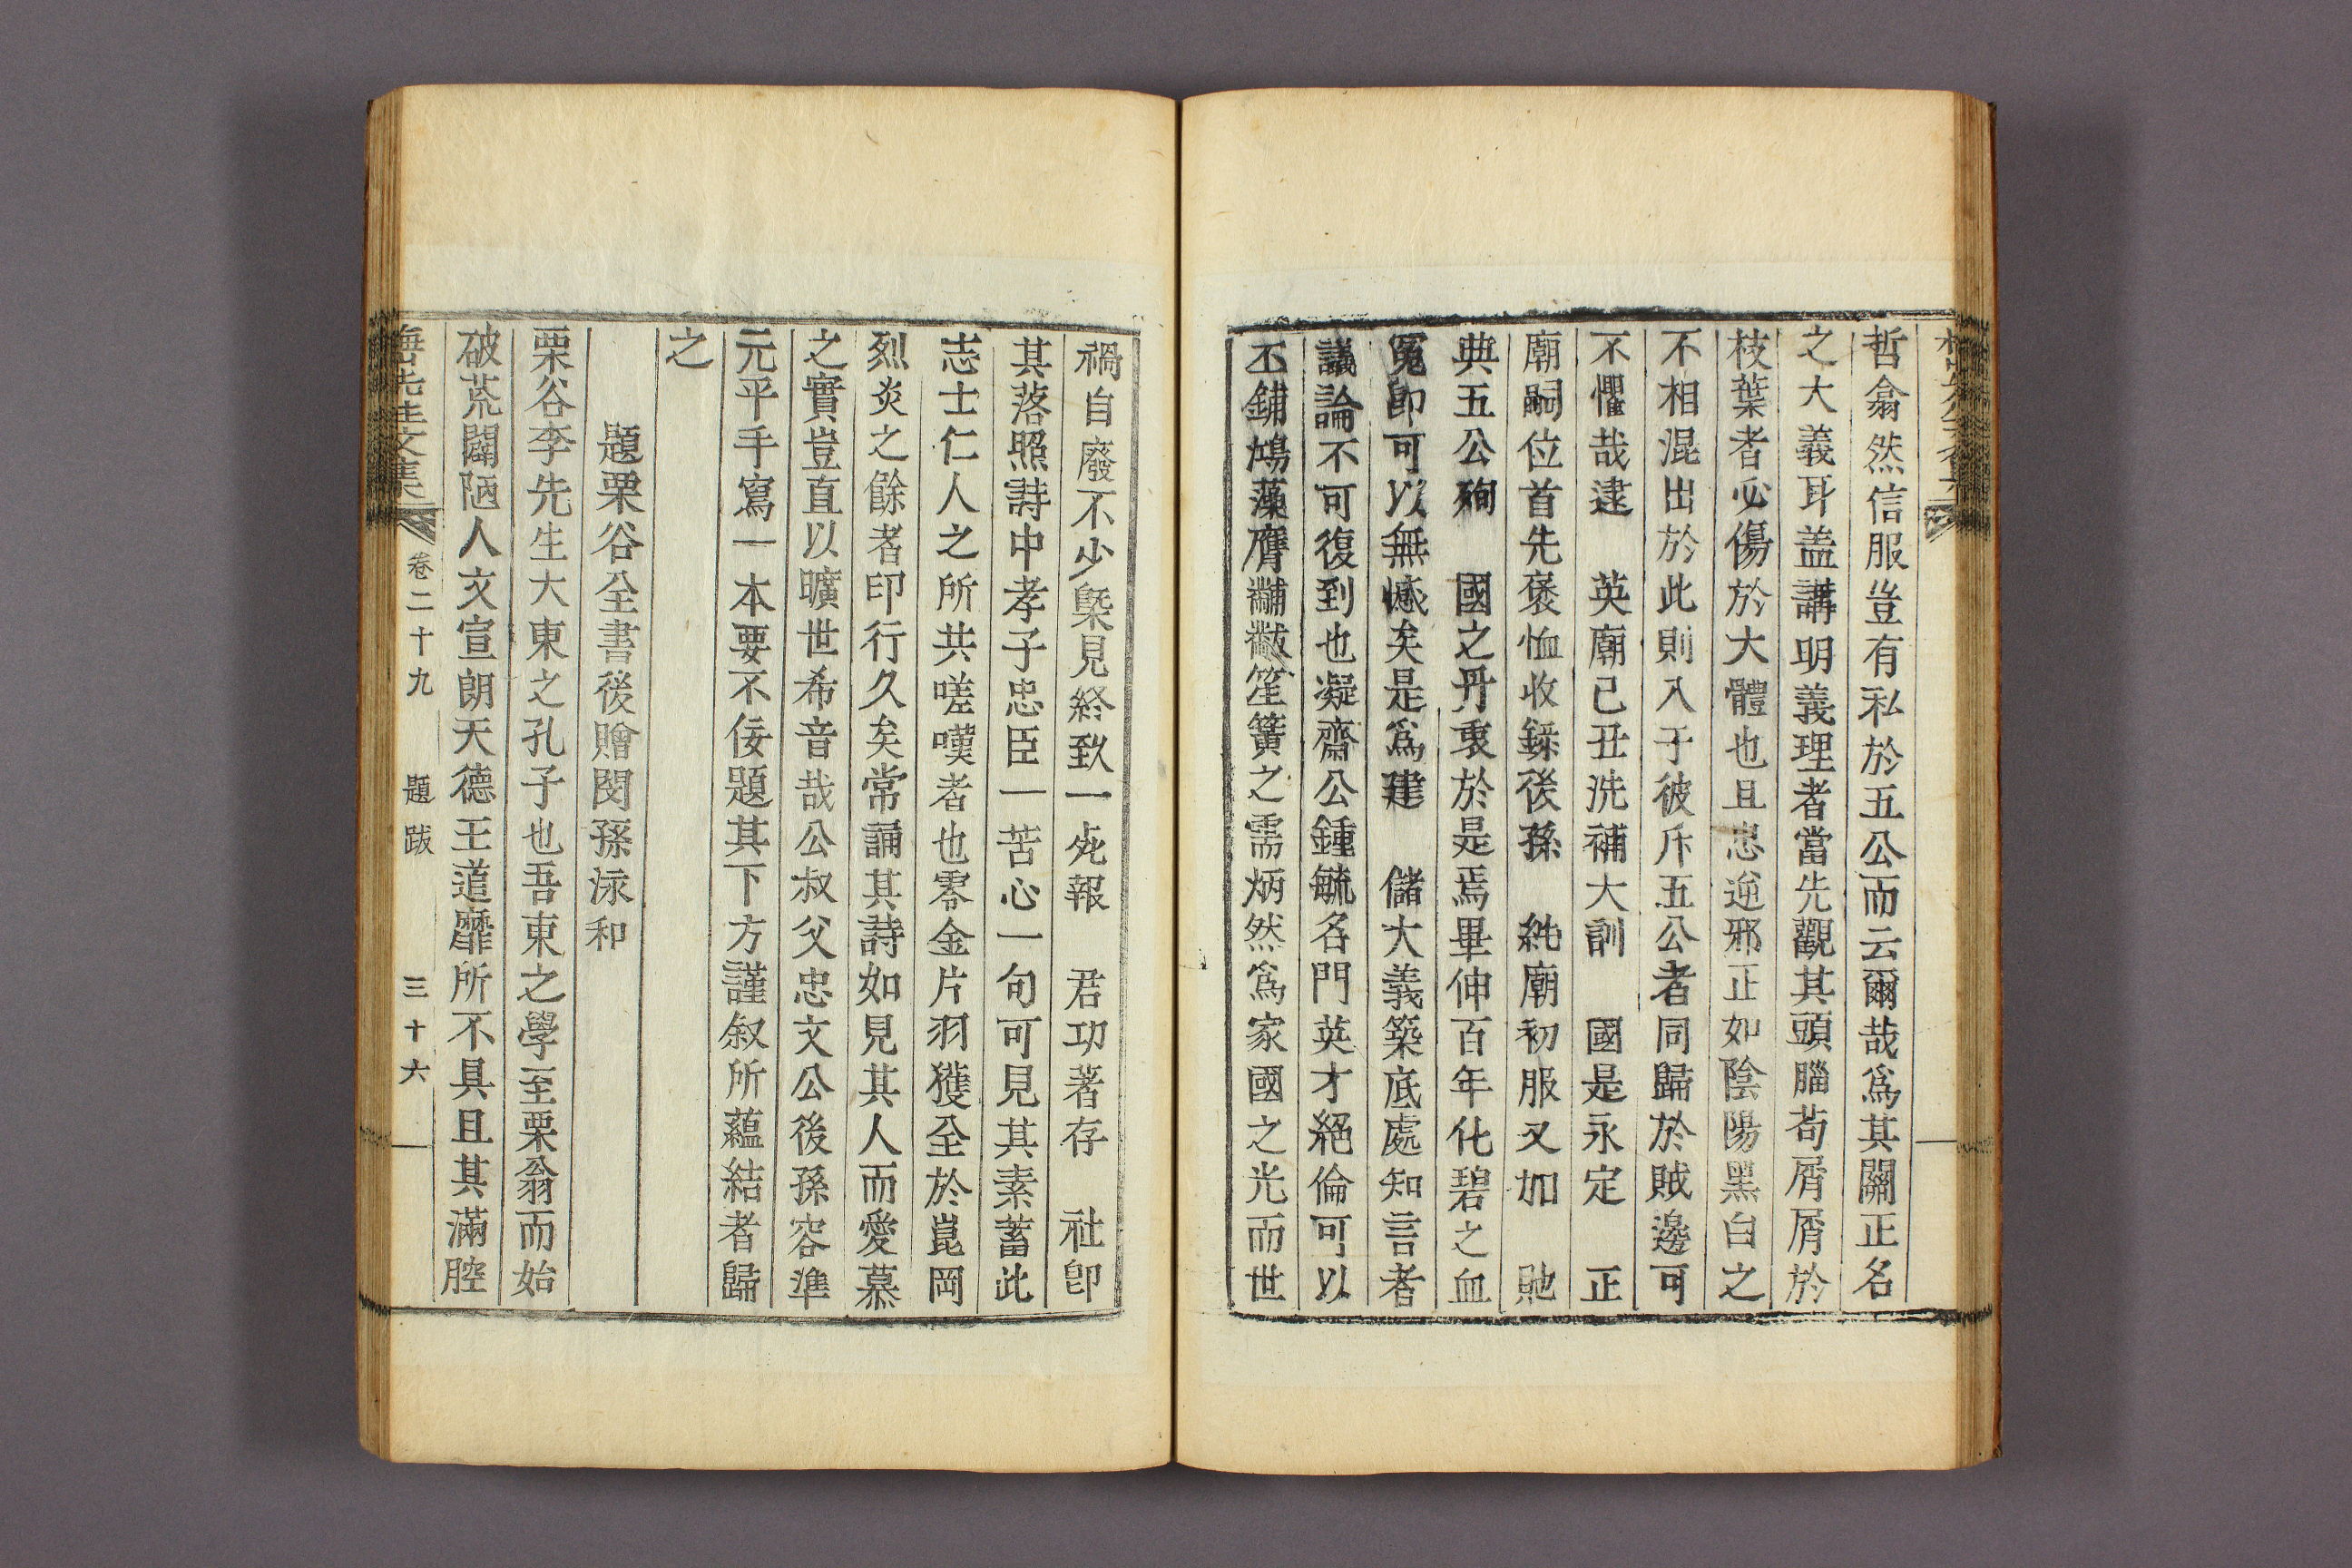 哲翕然信服豈有私於五公而云爾哉爲其關正名
之大義耳盖講明義理者當先觀其頭腦苟屑屑於
枝葉者必傷於大體也且忠逆邪正如陰陽黑白之
不相混出於此則入于彼斥五公者同歸於賊邊可
不懼哉逮　英廟己丑洗補大訓　國是永定　正
廟嗣位首先褒恤收錄後孫　純廟初服又加　貤
典五公殉　國之丹衷於是焉畢伸百年化碧之血
冤卽可以無憾矣是爲建　儲大義築底處知言者
議論不可復到也凝齋公鍾毓名門英才絕倫可以
丕鋪鴻藻膺黼黻笙簧之需炳然爲家國之光而世
禍自廢不少槩見終致一死報　君功著存　社卽
其落照詩中孝子忠臣一苦心一句可見其素蓄此
志士仁人之所共嗟嘆者也零金片羽獲全於崑岡
烈炎之餘者印行久矣常誦其詩如見其人而愛慕
之實豈直以曠世希音哉公叔父忠文公後孫容準
元平手寫一本要不佞題其下方謹叙所蘊結者歸
之
題栗谷全書後贈閔孫泳和
栗谷李先生大東之孔子也吾東之學至栗翁而始
破荒闢陋人文宣朗天德王道靡所不具且其滿腔
先生文集　卷二十九　題跋　三十六